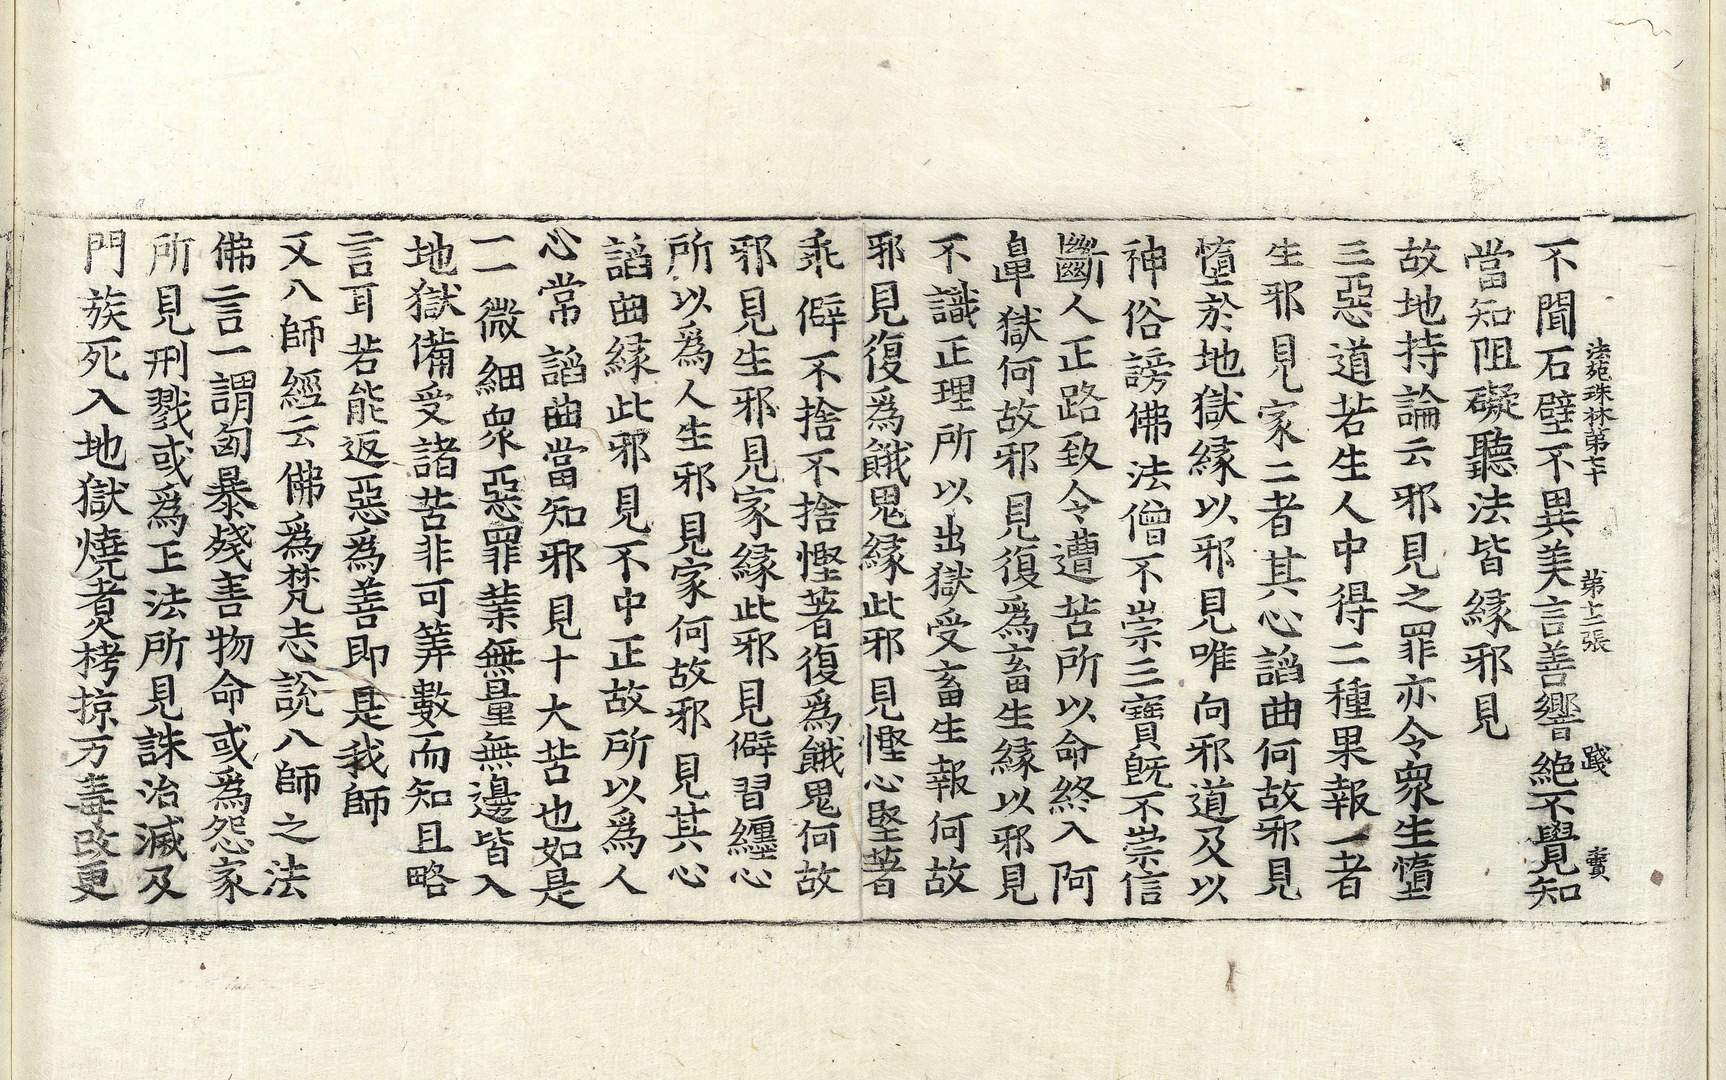 法苑珠林第七十　第十二張　踐　賓
不聞石壁不異美言善響絶不覺知
當知阻礙聽法皆縁邪見
故地持論云邪見之罪亦令衆生墮
三惡道若生人中得二種果報一者
生邪見家二者其心謟曲何故邪見
墮於地獄縁以邪見唯向邪道及以
神俗謗佛法僧不崇三寶旣不崇信
斷人正路致令遭苦所以命終入阿
鼻獄何故邪見復爲畜生縁以邪見
不識正理所以出獄受畜生報何故
邪見復爲餓鬼縁此邪見慳心堅著
乖僻不捨不捨慳著復爲餓鬼何故
邪見生邪見家縁此邪見僻習纏心
所以爲人生邪見家何故邪見其心
謟曲縁此邪見不中正故所以爲人
心常謟曲當知邪見十大苦也如是
一一微細衆惡罪業無量無邊皆入
地獄備受諸苦非可筭數而知且略
言耳若能返惡爲善即是我師
又八師經云佛爲梵志說八師之法
佛言一謂匈暴殘害物命或爲怨家
所見刑戮或爲王法所見誅治滅及
門族死入地獄燒煑栲掠万毒改更